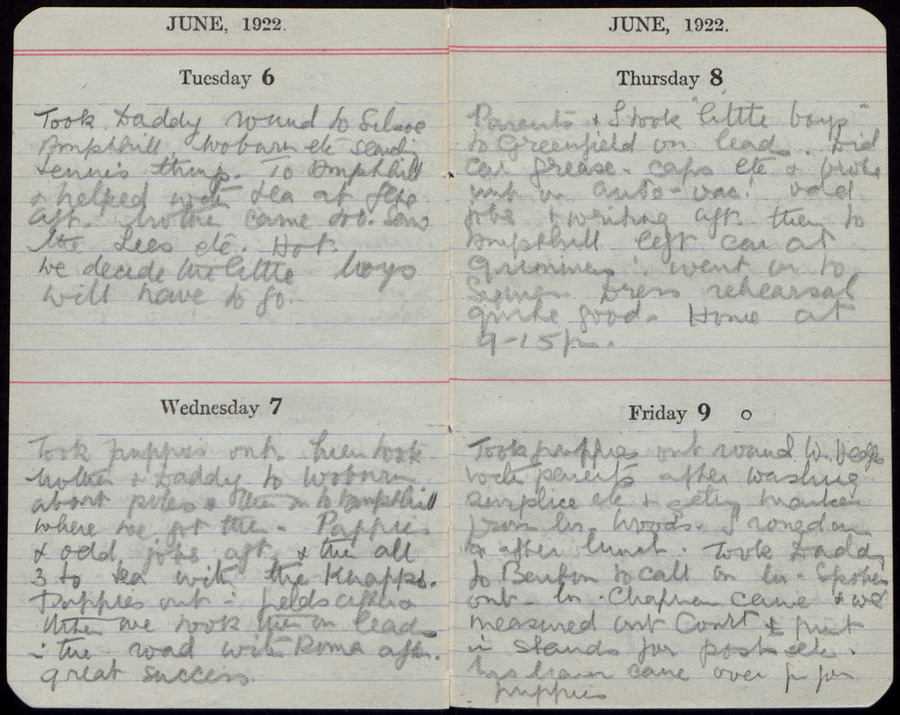 JUNE, 1922.
Tuesday 6
Took Daddy round to Silsoe
Ampthill, Woburn etc
tennis things. To Ampthill
& helped with tea at fete
aft. Mother came too. Saw
the Lees etc. Hot.
We decide the little boys
will have to go.
Wednesday 7
Took puppies out. Then took
Mother & Daddy to Woburn
about & then on to Ampthill
where we got them. Puppies
& odd jobs aft. & then all
3 to tea with the Knapps.
Puppies out in fields after
we took them on leads
in the road with Roma after.
great success.
JUNE, 1922.
Thursday 8
Parents & I took "little boys"
to Greenfield on leads. Did
car grease - caps etc & broke
nut on auto-vac! odd
jobs & writing aft. then to
Ampthill left car at
Grimmers & went on to
Dress rehearsal
quite good. Home at
9-15 pm.
Friday 9
Took puppies out round W. Hedge
with parents after washing
surplice etc & getting
from Mr. Woods. I
after lunch. Took Daddy
to call on Mr.
out. Mr. Chapman came & we
measured out Court & put
in stands for posts etc.
came over for
puppies